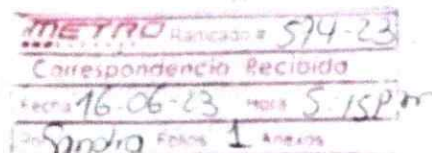 METRO Radicado # 574-23
Correspondencia Recibida
Fecha 16-06-23 Hora 5:15P.m
Por Sandra Folios 1 Anexos